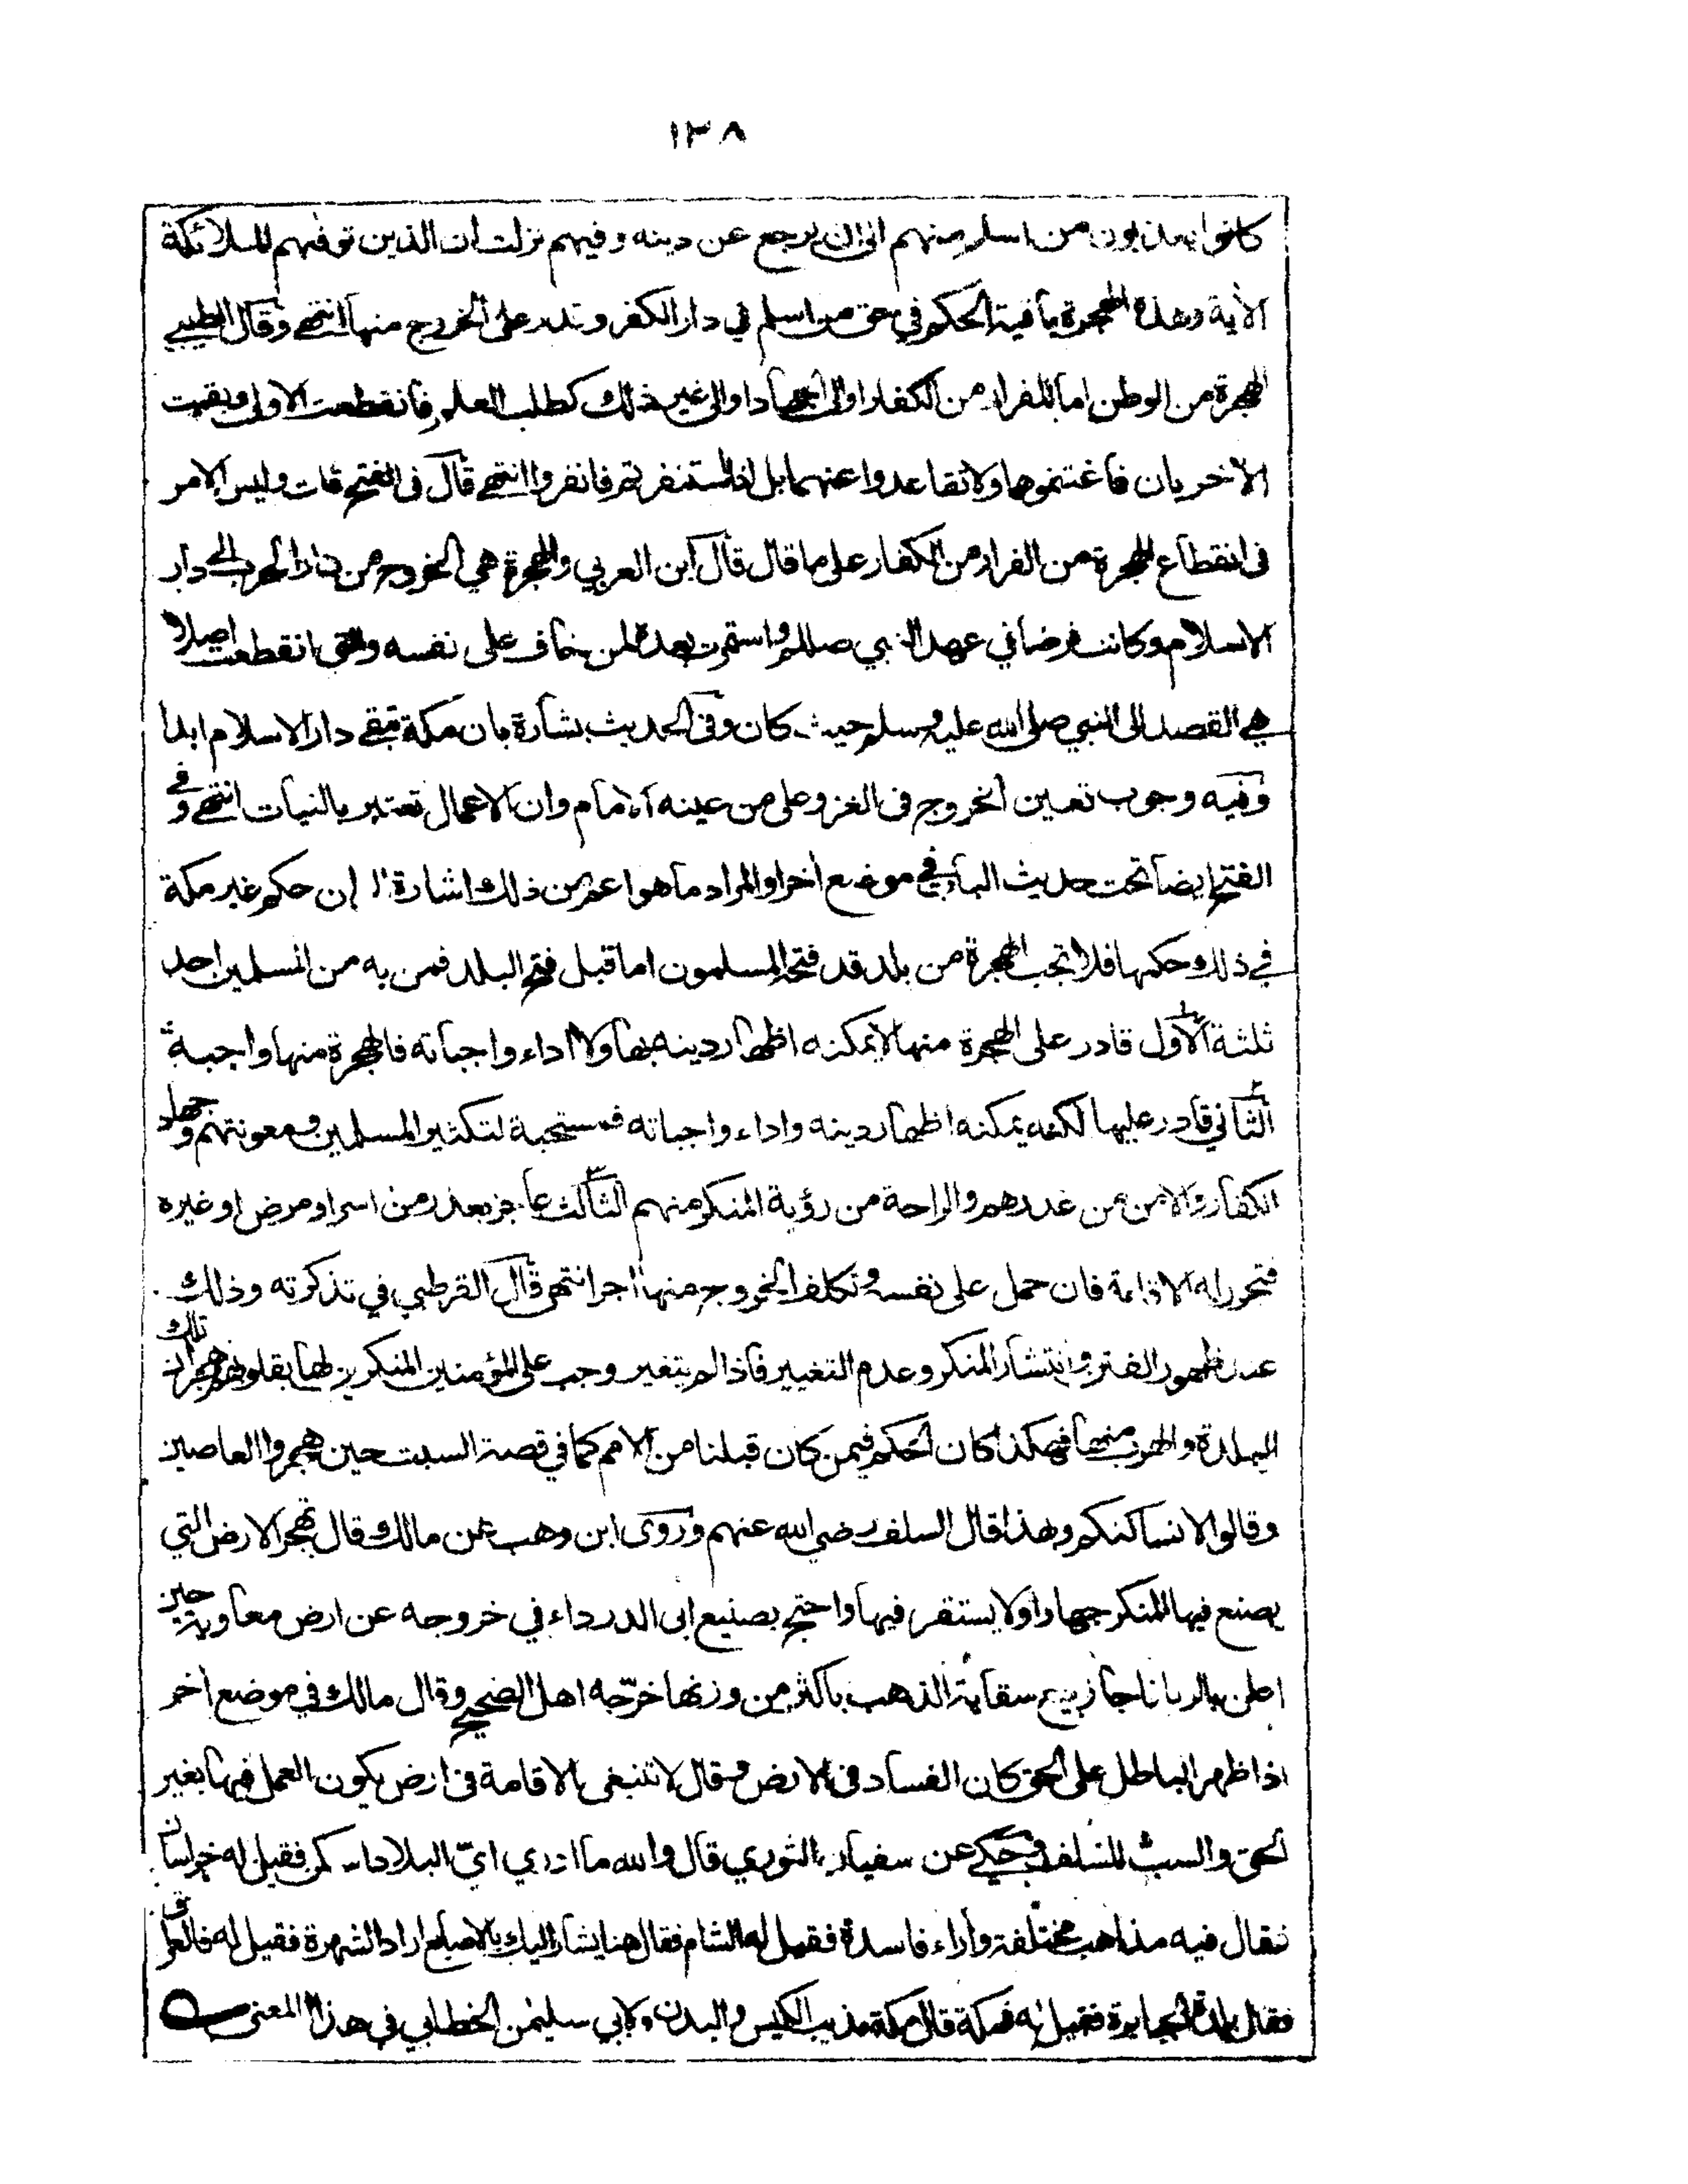 ١٣٨
كانوا يعذبون من اسلم منهم الى ان يرجع عن دينه وفيهم نزلت ان الذين توفهم الملائكة
الأية وهذه الهجرة باقية الحكم في حق من اسلم في دار الكفر وقدر على الخروج منها انتهى وقال الطيبي
الهجرة من الوطن اما للفرار من الكفار او الى الجهاد او الى غير ذلك كطلب العلم فانقطعت الاولى وبقيت
الأخريان فاغتنموهما ولا تقاعدوا عنهما بل اذا استنفرتم فانفروا انتهى قال في الفتح قلت وليس الامر
في انقطاع الهجرة من الفرار من الكفار على ما قال قال ابن العربي والهجرة هي الخروج من دار الحرب الى دار
الاسلام وكانت فرضا في عهد النبي صللم واستمرت بعده لمن خاف على نفسه والتي انقطعت اصلا
هي القصد الى النبي صلى الله عليه وسلم حيث كان وفي الحديث بشارة بان مكة تبقى دار الاسلام ابدا
وفيه وجوب تعين الخروج في الغزو على من عينه الامام وان الاعمال تعتبر بالنيات انتهى وفي
الفتح ايضا تحت حديث الباب في موضع أخر او المراد ما هو اعم من ذلك اشارة الى ان حكم غير مكة
في ذلك حكمها فلا تجب الهجرة من بلد قد فتحه المسلمون اما قبل فتح البلد فمن به من المسلمين احد
ثلثة الأول قادر على الهجرة منها لا يمكنه اظهار دينه بها ولا اداء واجباته فالهجرة منها واجبة
الثاني قادر عليها لكنه يمكنه اظهار دينه واداء واجباته فمستحبة لتكثير المسلمين ومعونتهم وجهاد
الكفار والامن من غدرهم والراحة من رؤية المنكر منهم الثالث عاجز بعذر من اسر او مرض او غيره
فتجوز له الاقامة فان حمل على نفسه وتكلف الخروج منها اجر انتهى قال القرطبي في تذكرته وذلك
عند ظهور الفتن وانتشار المنكر وعدم التغيير فاذا لم يتغير وجب على المؤمنين المنكرين لها بقلوبهم هجران تلك
البلدة والهرب منها فهكذا كان الحكم فيمن كان قبلنا من الامم كما في قصة السبت حين هجروا العاصين
وقالوا لا نساكنكم وبهذا قال السلف رضي الله عنهم وروى ابن وهب عن مالك قال تهجر الارض التي
يصنع فيها المنكر جهارا ولا يستقر فيها واحتج بصنيع ابى الدرداء في خروجه عن ارض معاوية حين
اعلن بالربا فاجاز بيع سقاية الذهب باكثر من وزنها خرّجه اهل الصحيح وقال مالك في موضع أخر
اذا ظهر الباطل على الحق كان الفساد في الارض وقال لا تنبغى الاقامة في ارض يكون العمل فيها بغير
الحق والسب للسلف وحكي عن سفيان الثوري قال والله ما ادري ايّ البلاد اسكن فقيل له خراسان
فقال فيه مذاهب مختلفة وأراء فاسدة فقيل له الشام فقال هنا يشار اليك بالاصابع اراد الشهرة فقيل له فالعراق
فقال بلدة الجبابرة فقيل له فمكة قال مكة تذيب الكيس والبدن ولابي سليمن الخطابي في هذا المعنى